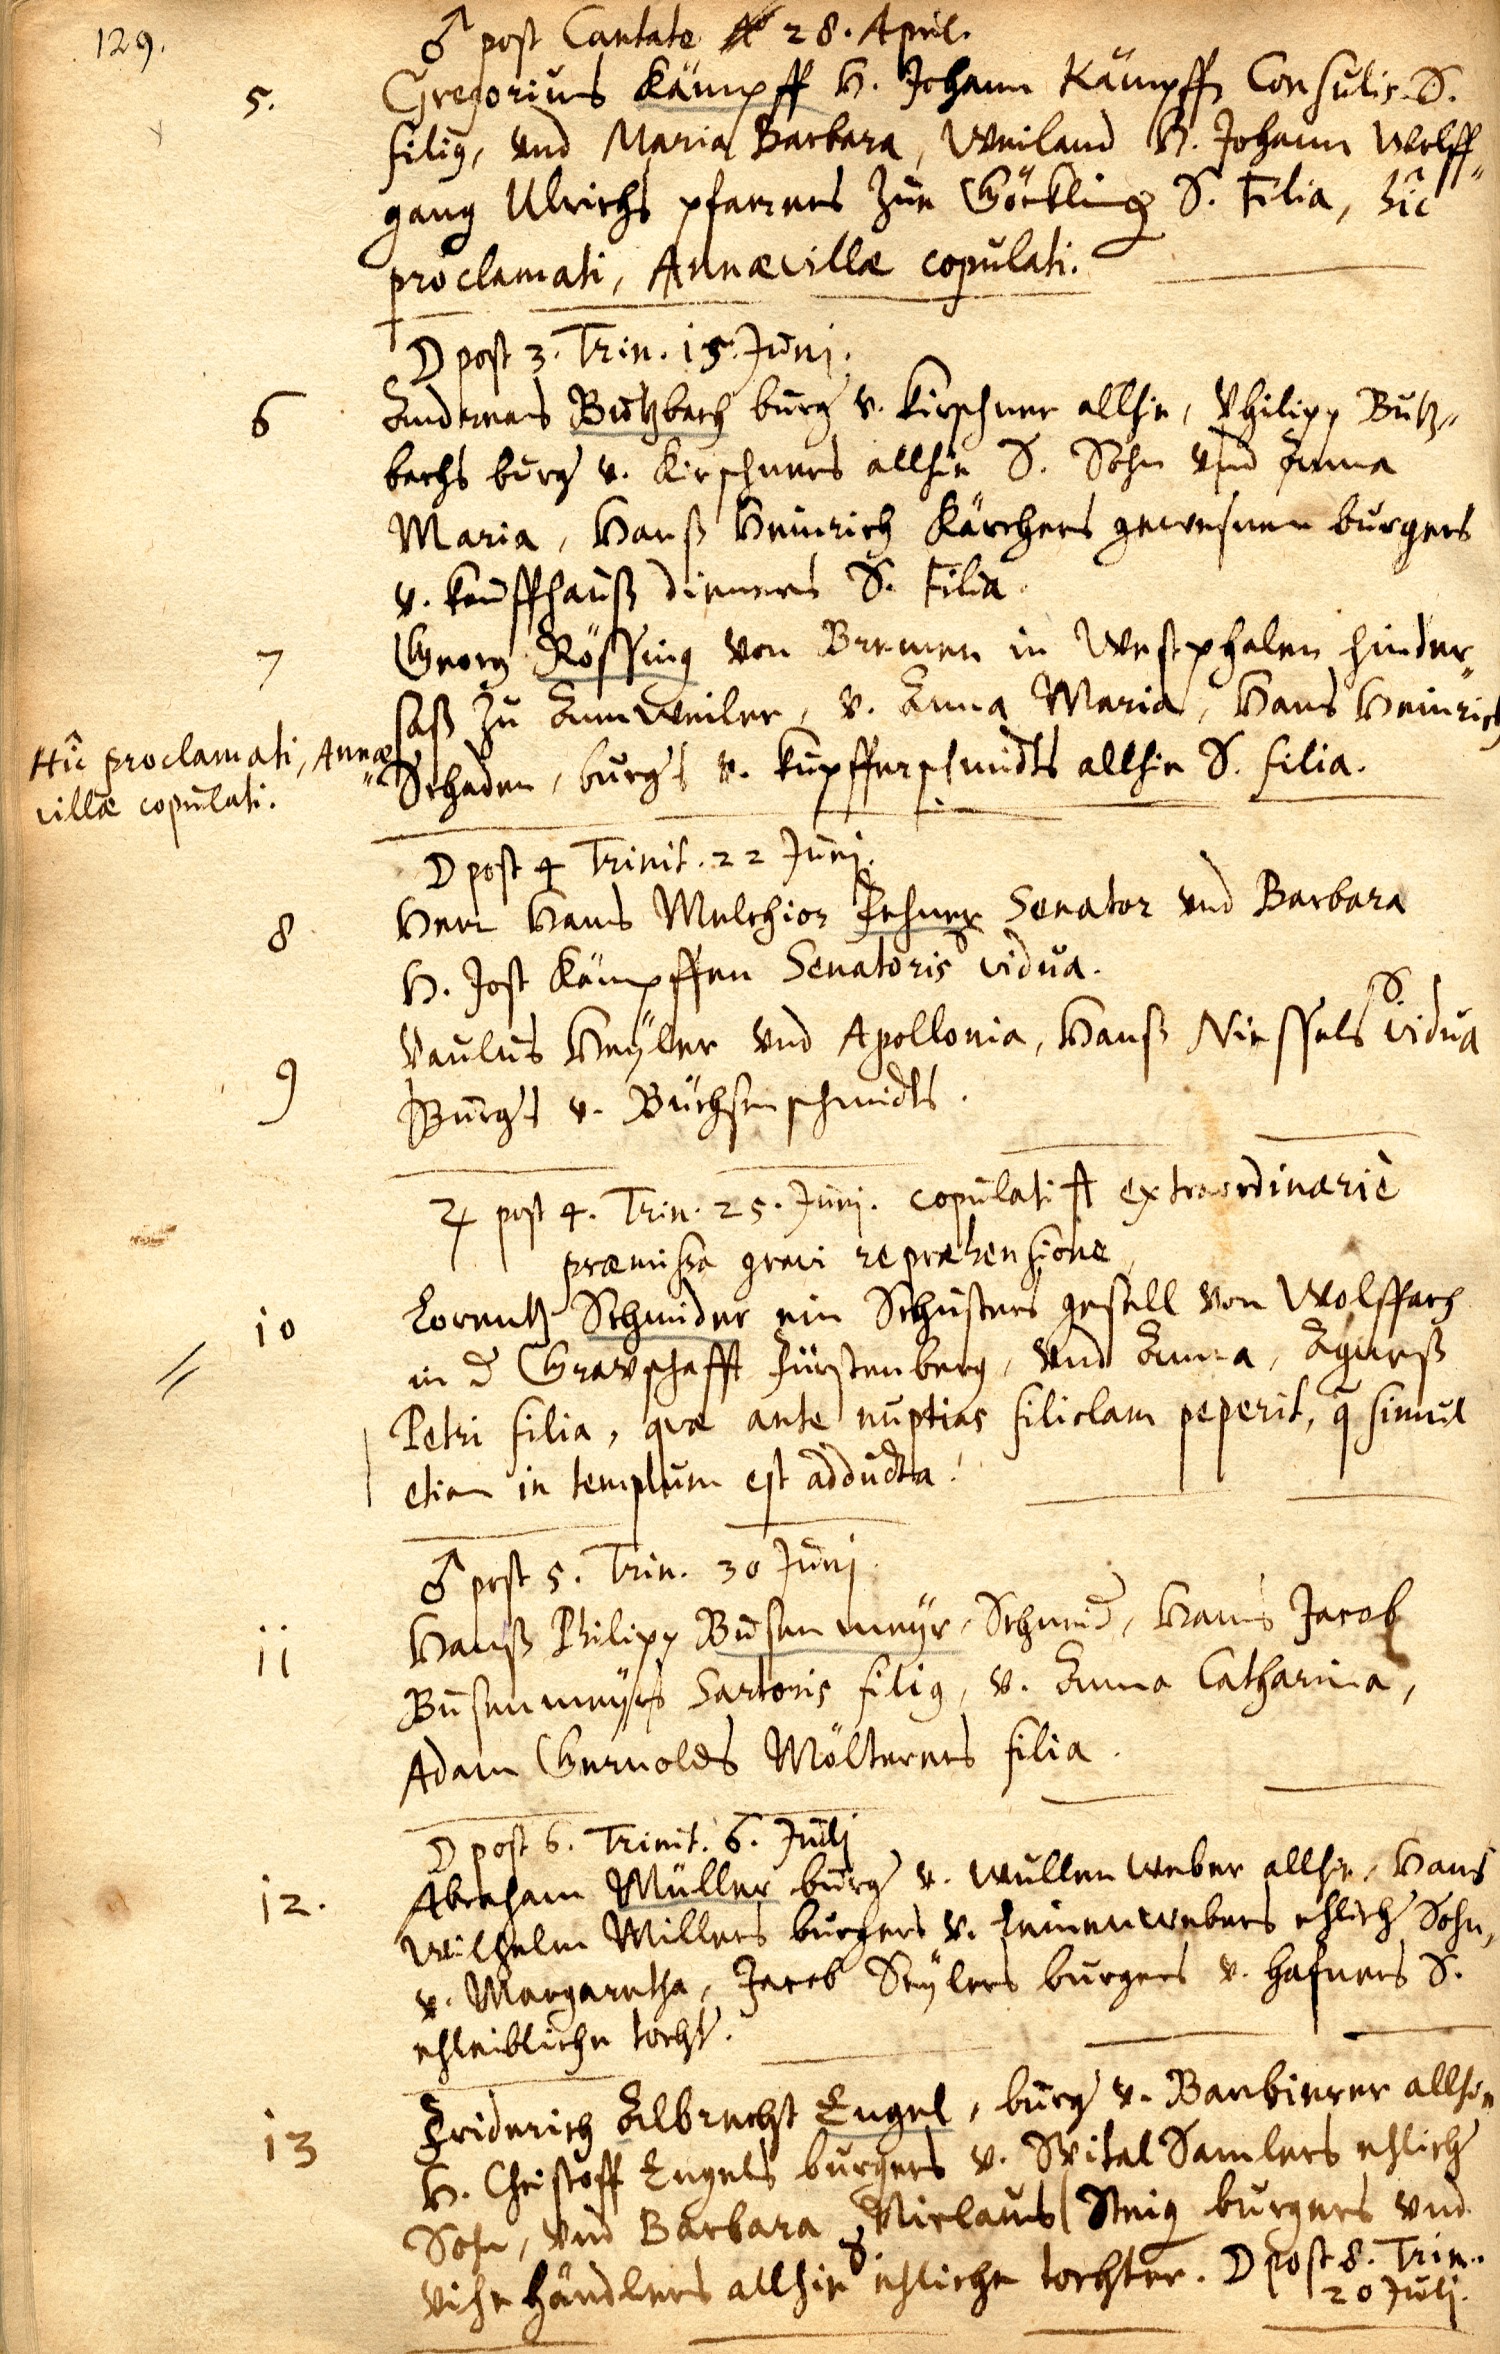 129.
♂ post Cantate 28. April.
5. Gregorius Kämpff H. Johann Kämpffs Consulis S.
filiq, vnd Maria Barbara, Weiland H. Johann Wolff„
gang Ulrichs pfarrers zue Göckling S. Filia, hîc
proclamati, Annævillæ copulati.
☽ post 3. Trin. 15. Junj.
6 Andreas Butzbach burg v. Kirschner allhie, Philipp Butz„
bachs burg v. Kirschners allhie S. Sohn vnd Anna
Maria, Hanß Heinrich Kärchers gewesnen burgers
v. kauffhauß dieners S. Filia.
7 Georg Rössing von Bremen in Westphalen hinder„
saß zu Annweiler, v. Anna Maria, Hans Heinrich
Schaden, burgs v. kupfferschmidts allhie S. filia.
Hîc proclamati, Annæ„
villæ copulati.
☽ post 4 Trinit. 22 Junj.
8 Herr Hans Melchior Senator vnd Barbara
H. Jost Kämpffen Senatoris S vidua.
9 Paulus Heÿler vnd Apollonia, Hanß Niessels S. vidua
Burgs v. Büchsenschmidts.
♃ post 4. Trin. 25. Junj. copulati extraordinariè
præmissa gravi repræhensione
10 Lorentz Schnider ein Schusters gesell von Wolffach
in d Gravschafft Fürstenberg, vnd Anna, Agneß
Petri filia, quæ ante nuptias filiolam peperit, q simul
etiam in templum est adducta.
♂ post 5. Trin. 30 Junj
11 Hanß Philipp Busenmeyr, Schmid, Hans Jacob
Busenmeyrs Sartoris filiq, v. Anna Catharina,
Adam Gernolds Mölterers filia.
☽ post 6. Trinit. 6. Julj
12. Abraham Müller burg v. wullenweber allhie, Hans
Wilhelm Millers burgers v. Leinenwebers ehlich Sohn,
v. Margaretha, Jacob Seÿlers burgers v. hafners S.
ehleibliche tocht.
13 Friderich Albrecht Engel, burg v. Barbierer allhie
H. Christoff Engels burgers v. Spital Samlers ehlich
Sohn, vnd Barbara Niclaus Steig burgers vnd
vihe händlers allhie ehliche tochter. ☽ post 8. Trin.
20 Julj.